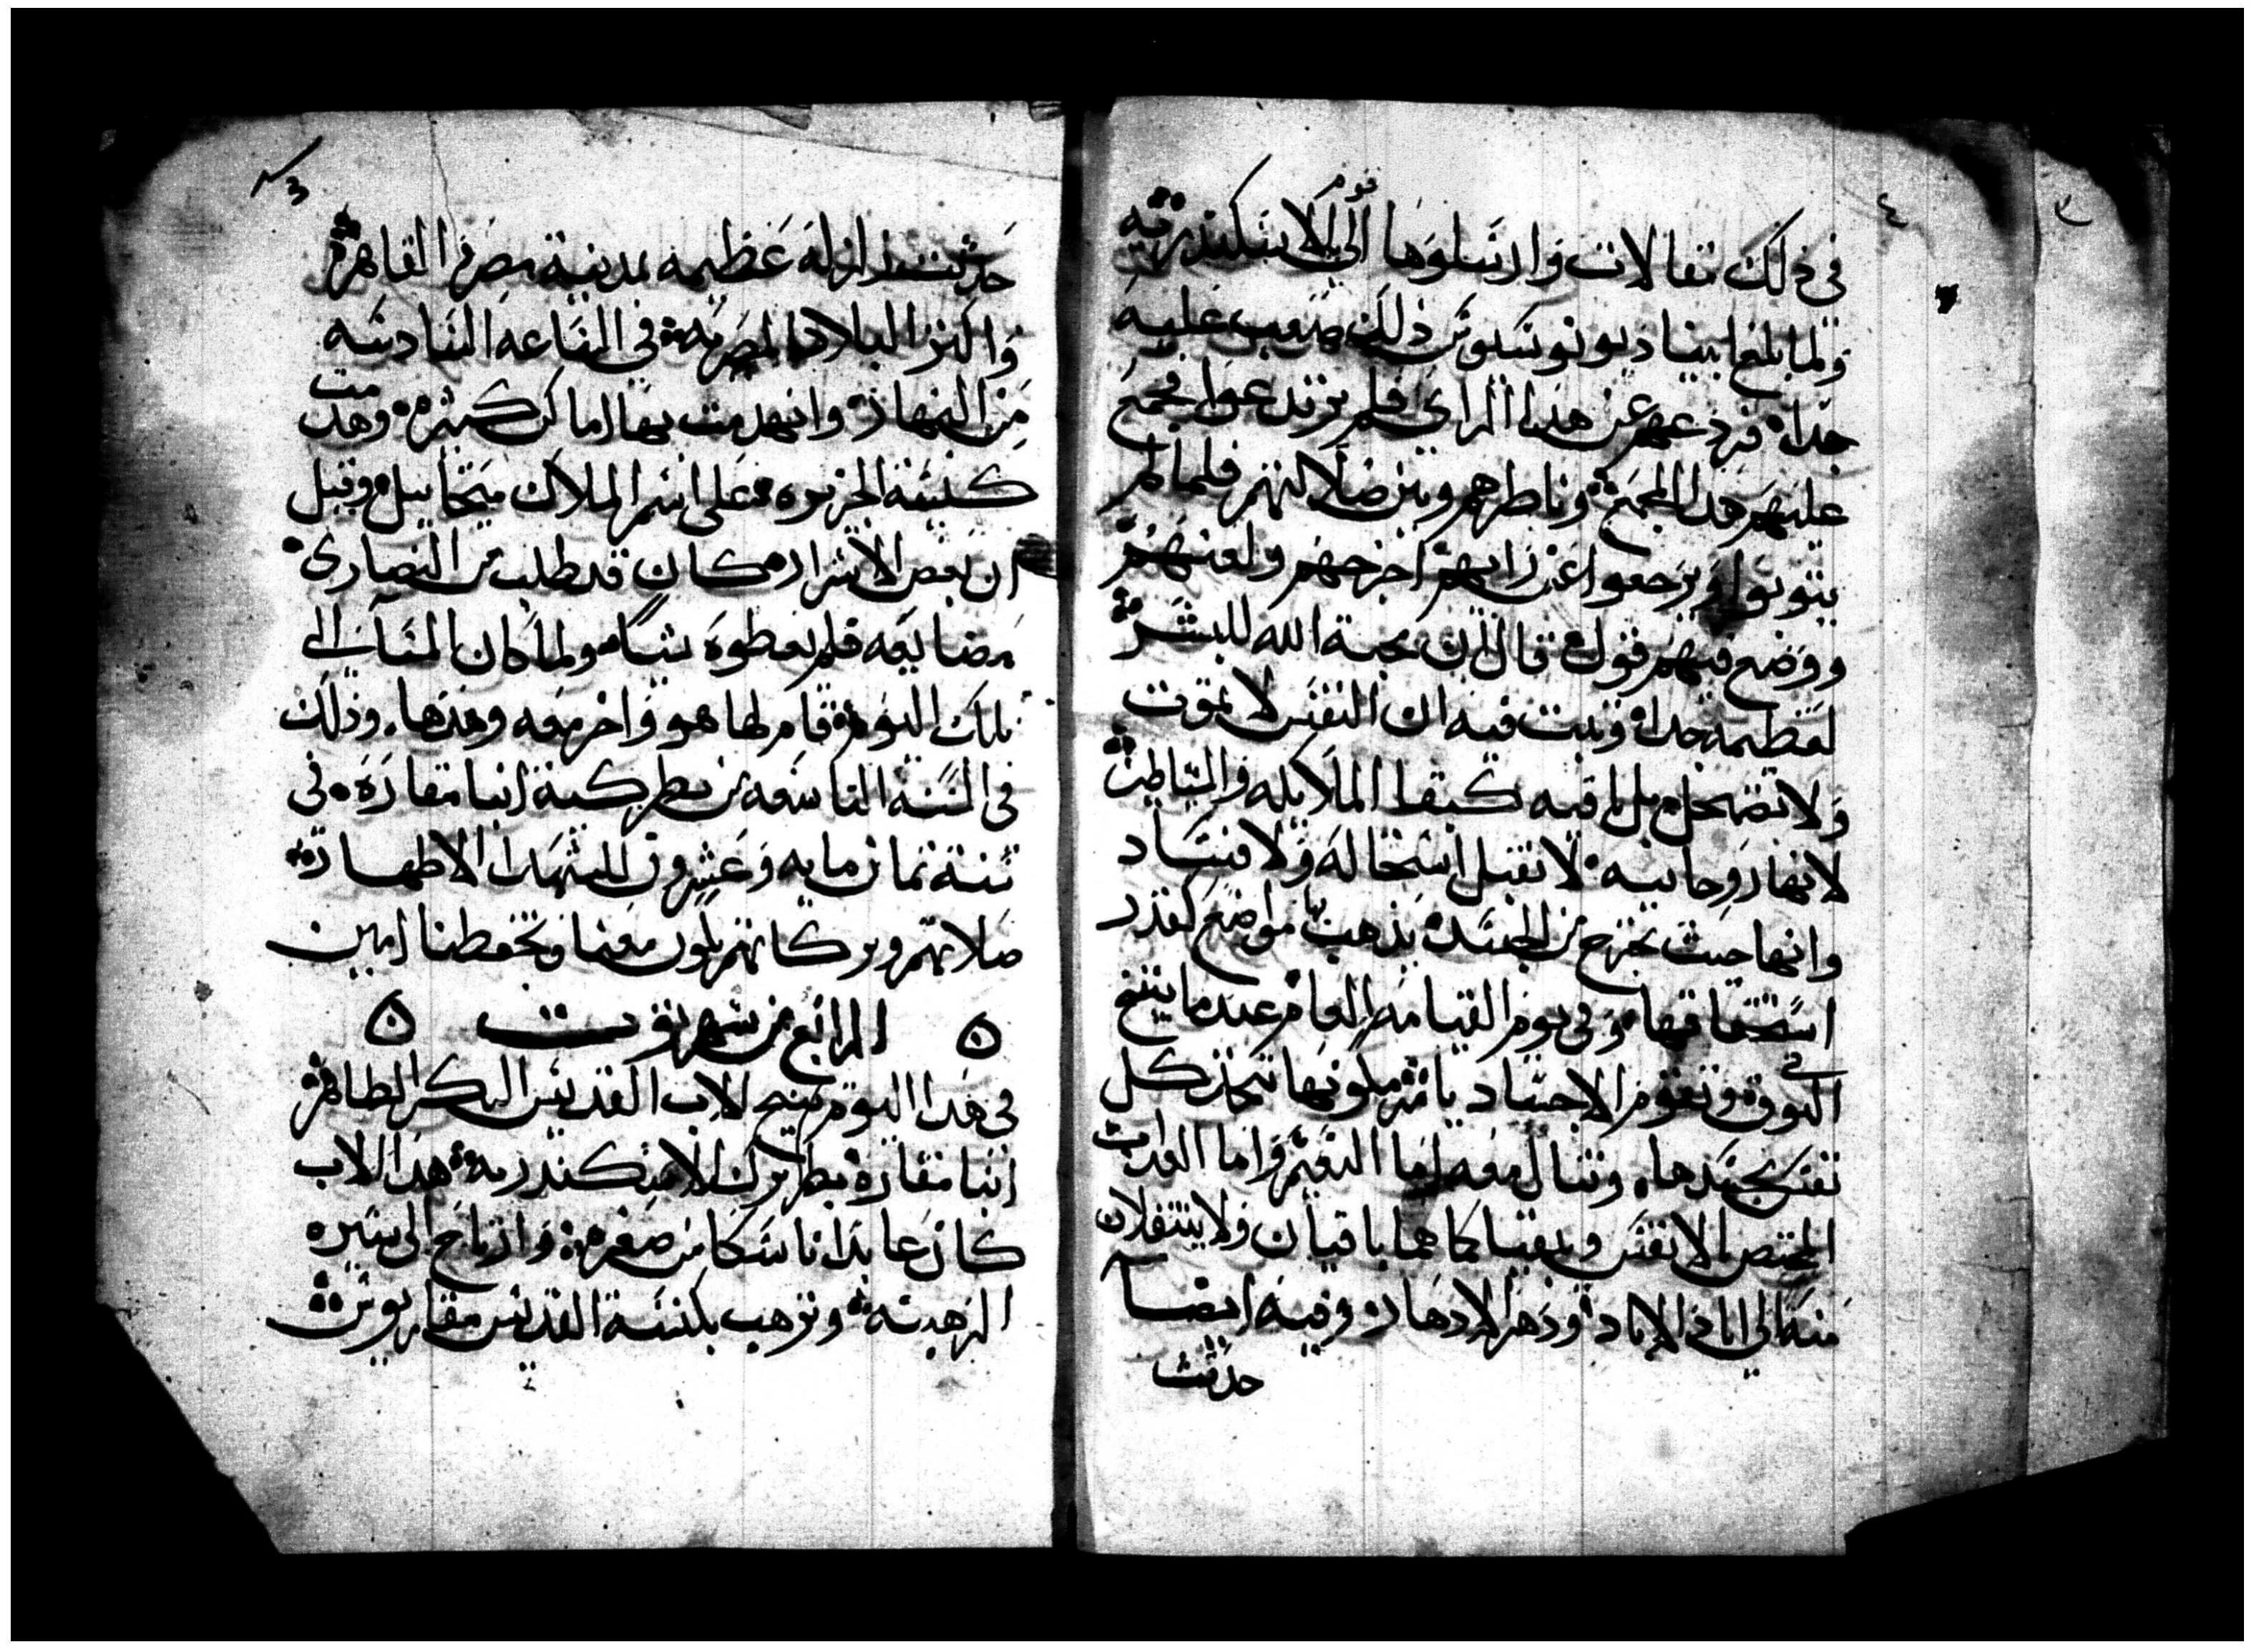 ٤
قوم
في ذلك مقالات وارسلوها الي الاسكندرية
ولما بلغ ابينا ديونوسيوس ذلك صعب عليه
جدا فردعهم عن هذا الراي فلم يرتدعوا فجمع
عليهم هذا المجمع وناظرهم وبين ضلالتهم فلما لم
يتوبوا ويرجعوا عن رايهم اخرجهم ولعنهم
ووضع فيهم قول قال ان محبة الله للبشر
لعظيمه جدا وثبت فيه ان النفس لا تموت
ولا تضمحل بل باقيه كبقا الملايكه والشياطين
لانها روحانيه لا تقبل استحاله ولا فساد
وانها حيث تخرج من الجسد يذهب بها مواضع كقدر
استحقاقها وفي يوم القيامه العام عندما ينفخ
في
البوق وتقوم الاجساد بامر ملونها تتحد كل
نفس بجسدها وتنال معه اما النعيم واما العذاب
المختص بالانفس ويبقيا كما هما باقيان ولا ينتقلان
منه الي اباد الاباد ودهر الادهار وفيه ايضا
حدثت
3
حدثت زلزله عظيمه بمدينة مصر والقاهره
واكثر البلاد المصريه في الساعه السادسه
من النهار وانهدمت بها اماكن كثيره وهدمت
كنيسة الجزيره على اسم الملاك ميخاييل وقيل
ان بعض الاشرار كان قد طلب من النصارى
مضايعه فلم يعطوه شيا ولما كان المسا الي
تلك اليوم قام لها هو واخر معه وهدها وذلك
في السنة التاسعه من بطريركية انبا مقاره في
سنة ثمان مايه وعشرون للشهدا الاطهار
صلاتهم وبركاتهم تكون معنا وتحفظنا امين
الرابع من شهر توت
في هذا اليوم تنيح الاب القديس البكر الطاهر
انبا مقاره بطريرك الاسكندريه هذا الاب
كان عابدا ناسكا من صغره وارتاح الى سيره
الرهبنه وترهب بكنيسة القديس مقاريوس